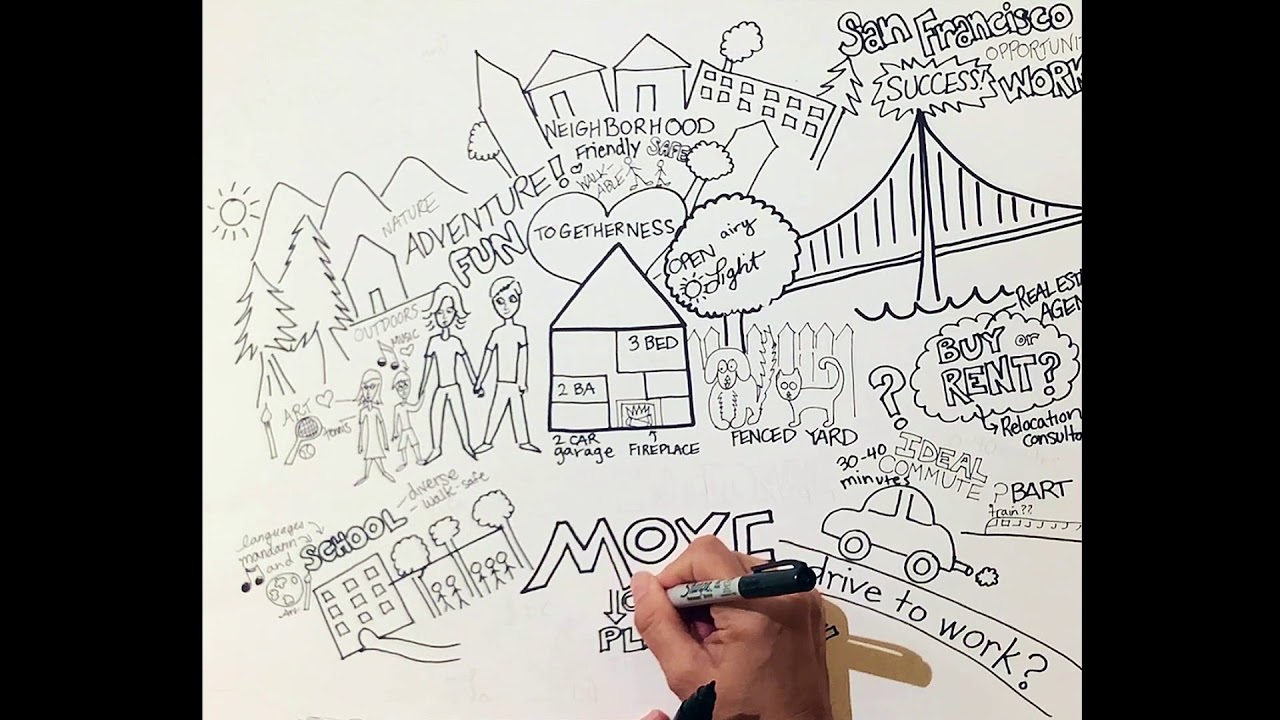 San Francisco
OPPORTUNI
SUCCESS!
WORK
NEIGHBORHOOD
Friendly SAFE
WALK-
ABLE
NATURE
ADVENTURE!
FUN
TOGETHERNESS
OPEN airy
Light
OUTDOORS
MUSIC
ART
tennis
3 BED
2 BA
2 CAR
garage
FIREPLACE
FENCED YARD
REAL EST
AGEN
BUY or
RENT?
?
Relocation
consulta
IDEAL
COMMUTE
30-40
minutes
? BART
train??
drive to work?
SCHOOL
-diverse
-walk-safe
languages
mandarin
and
Art
MOVE
PL
Sharpie